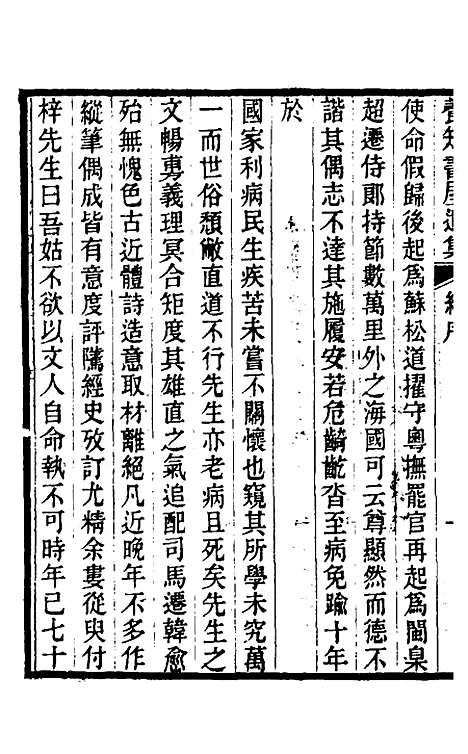 養知書屋遺集 總序
使命假歸後起爲蘇松道擢守粵撫罷官再起爲閩臬
超遷侍郎持節數萬里外之海國可云尊顯然而德不
諧其偶志不達其施履安若危齮齕沓至病免踰十年
於
國家利病民生疾苦未嘗不關懷也窺其所學未究萬
一而世俗頹敝直道不行先生亦老病且死矣先生之
文暢尃義理冥合矩度其雄直之氣追配司馬遷韓愈
殆無愧色古近體詩造意取材離絕凡近晚年不多作
縱筆偶成皆有意度評騭經史攷訂尤精余婁從臾付
梓先生曰吾姑不欲以文人自命執不可時年已七十